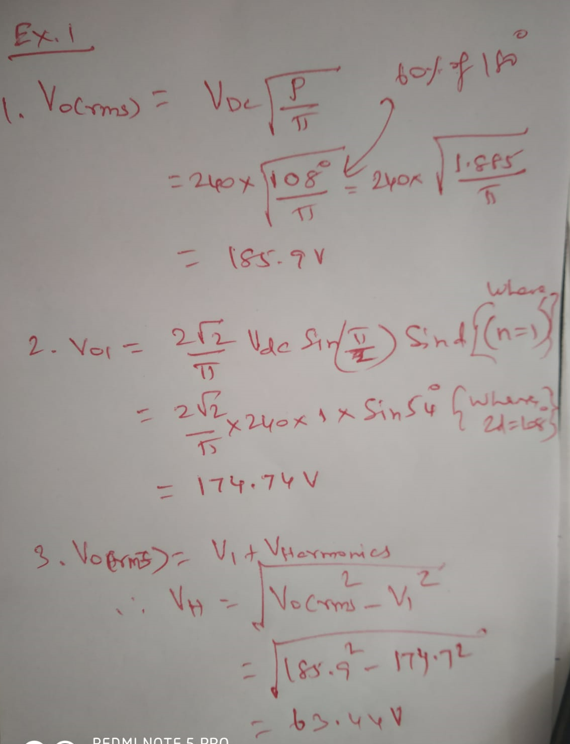 Ex.1
60% of 180°
1. Vo(rms) = VDC √(P/π)
= 240 × √(108°/π) = 240 × √(1.885/π)
= 185.9 V
2. Vo1 = 2√2/π Vdc Sin(π/2) Sin d {where (n=1)}
= 2√2/π × 240 × 1 × Sin 54° {where, 2d=108°}
= 174.74 V
3. Vo(rms) = V1 + VHarmonics
∴ VH = √(Vo(rms)² - V1²)
= √(185.9² - 174.7²)
= 63.44 V
REDMI NOTE 5 PRO